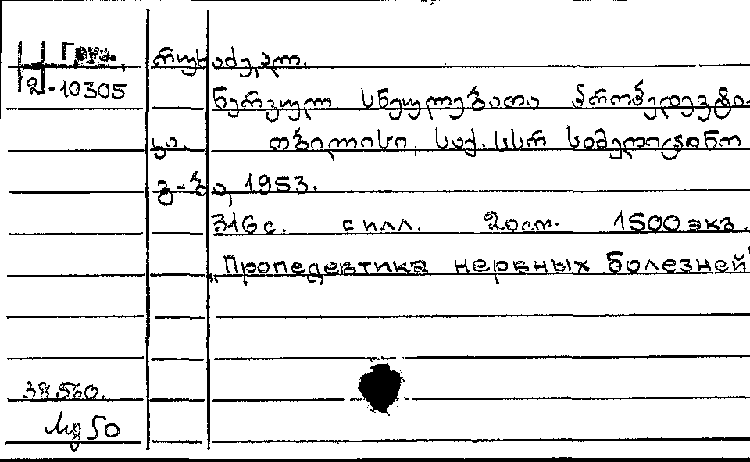 Груз.
2-10305
ნერვიულ სნეულებათა პროპედევტი-
კა. თბილისი, საქ. სსრ სამედიცინო
გ-ბა, 1953.
316 с. с илл. 20см. 1500 экз.
„Пропедевтика нервных болезней"
38.560.
50